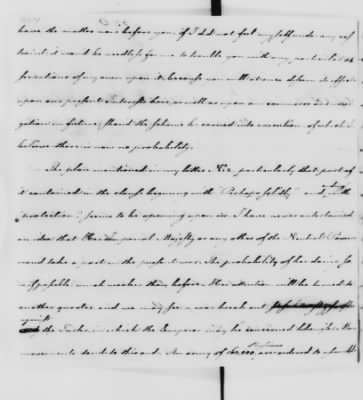 have the matter now before you, if I did not feel myself under any res
traint it would be needless for me to trouble you with any particular ob
servations of my own upon it, because you will at once discern its effects
upon our present Interests here, as well as upon our commerce and navi
gation in future, should the scheme be carried into execution of which I
believe there is now no probability.
The plan mentioned in my letter No. particularly that part of
it contained in the clause beginning with "Perhaps solidly" and with
"protection" seems to be opening upon us. I have never entertained
an idea that Her Imperial Majesty or any other of the Neutral Powers
would take a part in the present war. The probability of her doing so
is if possible much weaker than before. Her attention will be turned to
another quarter and we may see a war break out
against
the Turks, in which the Emperor may be concerned likewise. Her
movements tend to this end. An army of 60,000 are ordered to